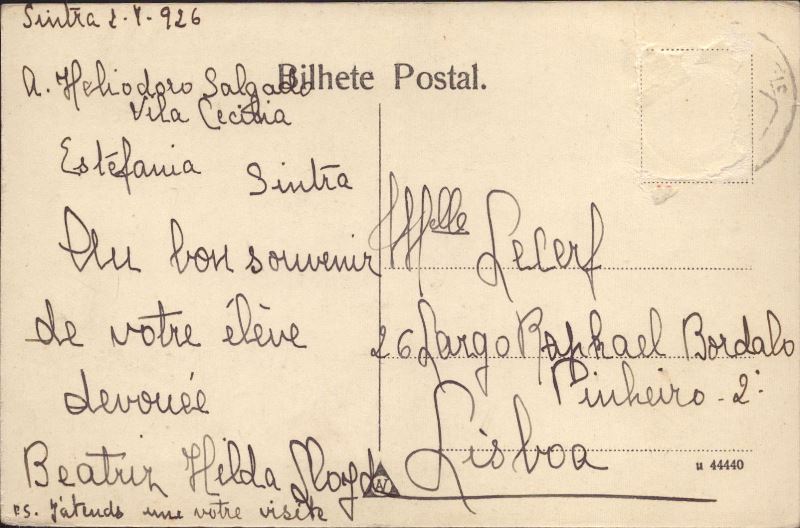 Sintra 2-7-926
Bilhete Postal.
A. Heliodoro Salgado
Vila Cecilia
Estéfania
Sintra
Un bon souvenir
de votre élève
devouée
Beatriz Hilda Lloyd
P.S. J'átends une votre visite
Melle Lecerf
26 Largo Raphael Bordalo
Pinheiro - 2º
Lisboa
u 44440